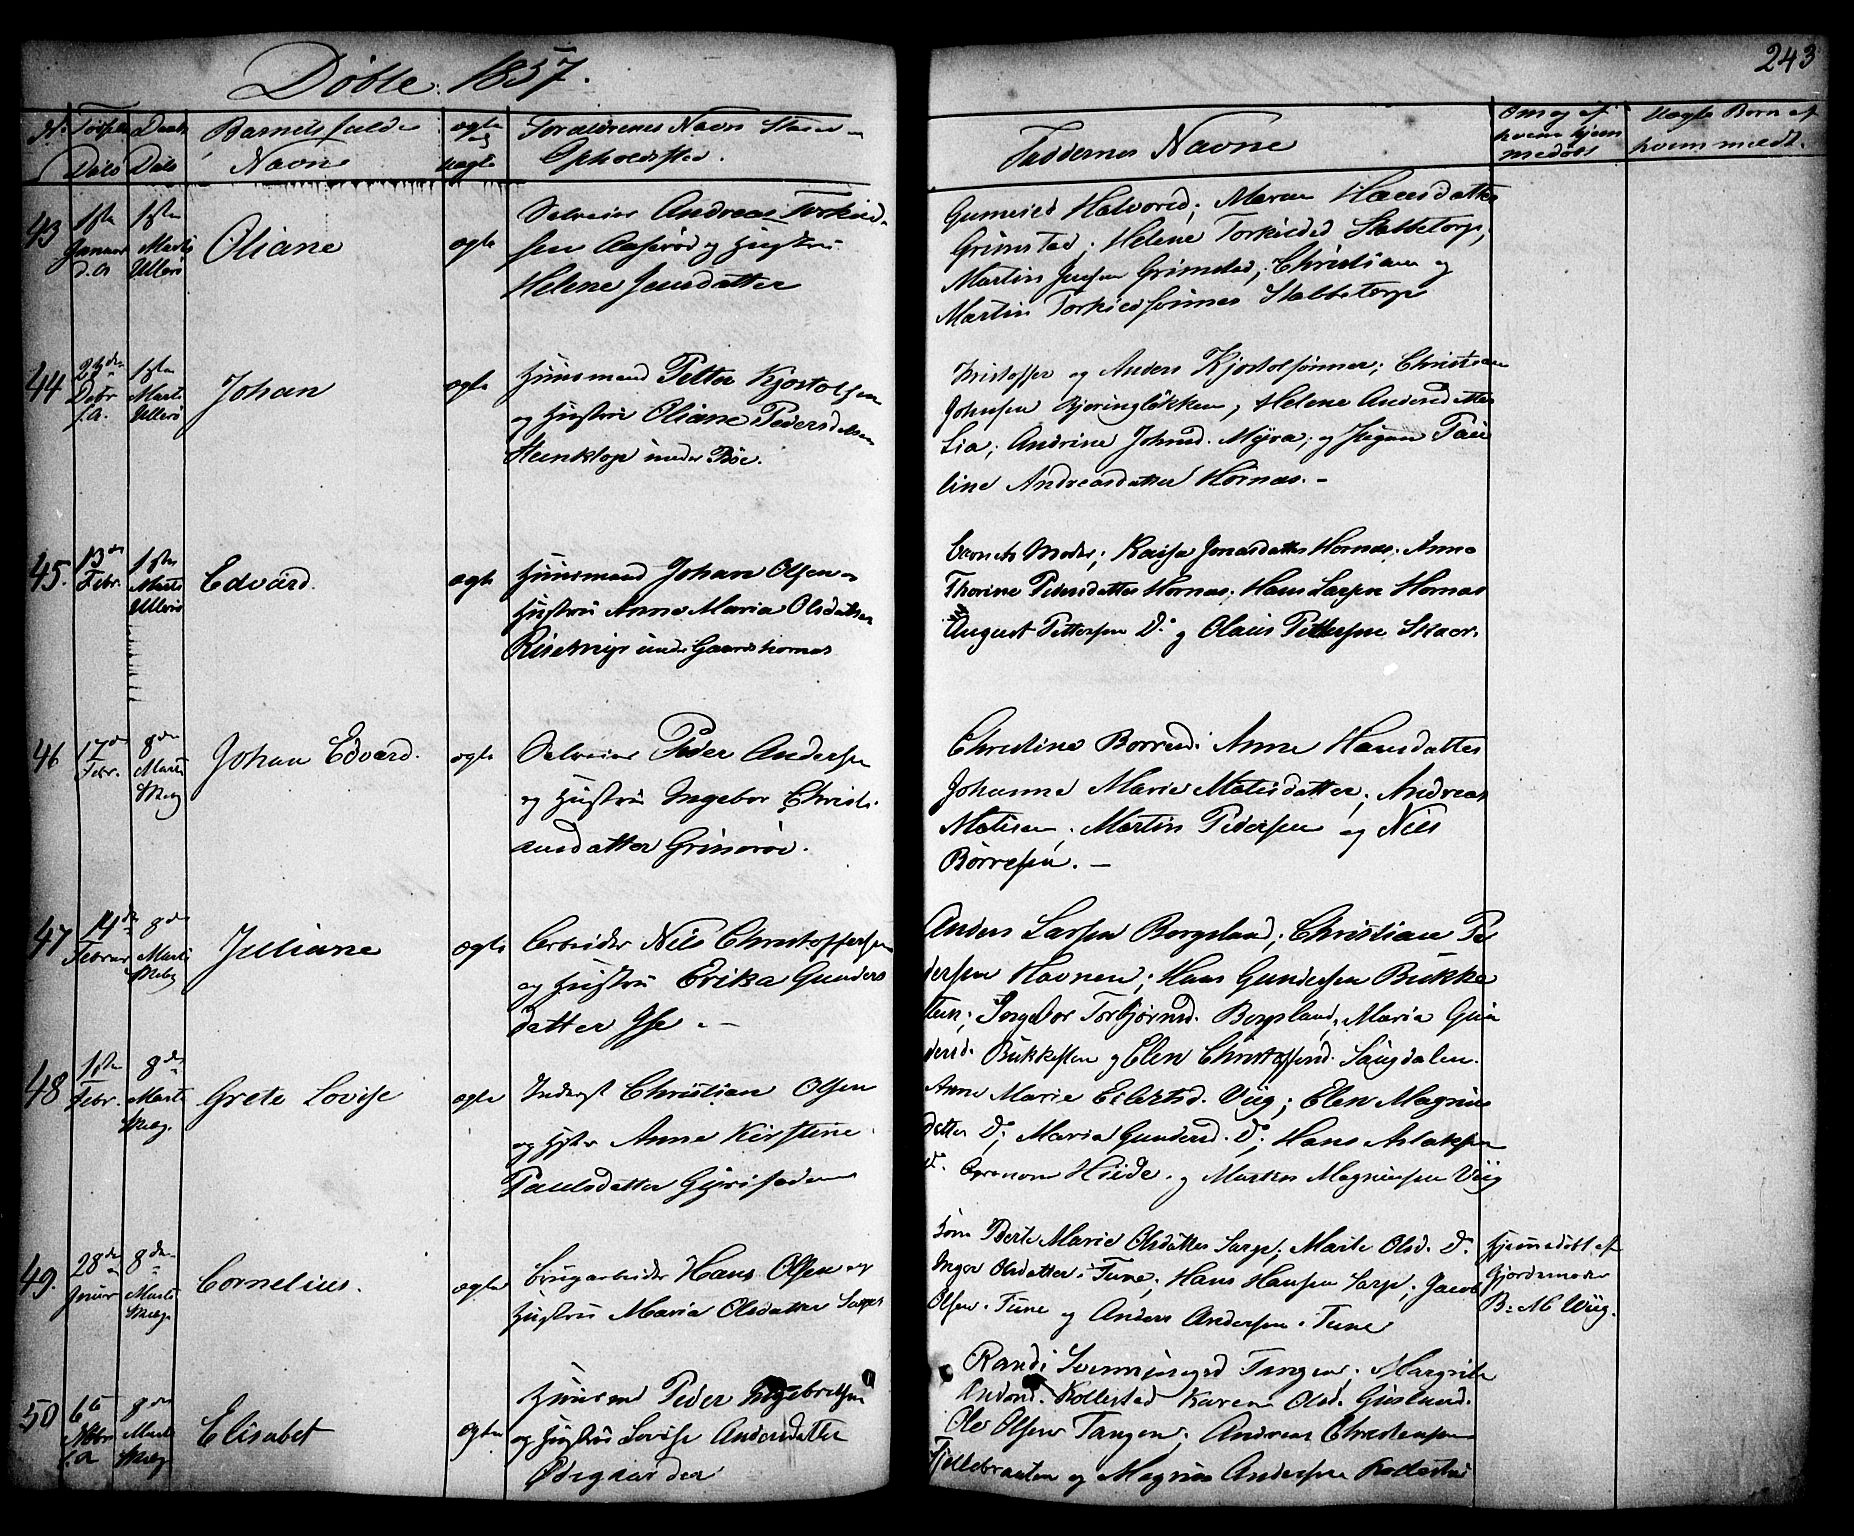 Döbte. 1857.
243
N.
Födsels
Daabs
Barnets fulde
ægte
og
Forældrenes Navn Stand
Dato
Dato
Navne
uægte
Opholdssted.
Faddernes Navne
Om og af
hvem hjem
medöbt
Uægte Börn af
hvem meldt.
43
1ste
Januar
d. a
1ste
Marts
Ullerö
Oliane
ægte
Selveier Andreas Torkild-
sen Aaseröd og Hustru
Helene Jensdatter
Halvorsd; Maren Hansdatter
Grimstad; Helene Torkildsd Stabbetorp;
Martin Jensen Grimstad; Christian og
Martin Torkildsönner Stabbetorp
44
Debr
f.a.
1ste
Marts
Ullerö
Johan
ægte
Huusmand Petter Kjostolsen
og Hustru Oliane Pedersdatter
under Böe.
Kristoffer og Anders Kjostolsönner; Christian
Johnsen Björinglökken, Helene Andersdatter
Lia; Andrine Johnsd. Myra; og Jigan Pau
line Andreasdatter Hornas. -
45.
13de
Febr.
1ste
Marts
Ullerö
Edvard.
ægte
Huusmand Johan Olsen
Hustru Anne Maria Olsdatter
under Gaard Hornas
Barnets Moder; Kaisa Jonasdatter Hornas; Anne
Thorine Pedersdatter Hornas; Hans Larsen Hornas
August Pettersen Do og Olaus Pettersen Skaar.
46
17de
Febr.
8de
Marts
Skieb.
Johan Edvard.
ægte
Selveier Peder Andersen
og Hustru Ingebor Christi-
ansdatter Grimsröd.
Christine Borresd; Anne Hansdatter
Johanne Marie Matisdatter; Andreas
Matisen. Martin Pedersen og Nils
Börresen. —
47
14de
Februar
8de
Marts
Skieb.
Juliane
ægte
Arbeider Nils Christoffersen
og Hustru Erika Gunders
datter Ise. —
Anders Larsen Borgeland; Christian Pe
dersen Havnen; Hans Gundersen Bukke
sten; Ingebor Torbjörnsd. Borgeland; Maria Gun
dersd. Bukkesten og Elen Christoffersd. Laugdalen.
48
1ste
Febr.
8de
Marts
Skieb.
Grete Lovise
ægte
Inderst Christian Olsen
og Hustru Anne Kirstine
Paulsdatter
Anne Marie Eilertsd. Viig; Elen Magnus
datter Do; Maria Gundersd. Do; Hans Aslaksen
Do. Hiide. og Martin Magnussen Viig
49.
28de
Januar
8de
Marts
Skieb.
Cornelius.
ægte
Brugarbeider Hans Olsen og
Hustru Maria Olsdatter Sarpen
Berte Marie Olsdatter Sarp; Marte Olsd. Do.
Inger Olsdatter i Tune; Hans Hansen Sarp; Jacob
Olsen i Tune og Anders Andersen i Tune
Hjemmedöbt af
Gjordemoder
B. M. Wiig.
50
Nbr
f.a
8de
Marts
Skieb.
Elisabet
ægte
Huusmd Peder Ingebretsen
og Hustru Lovise Andersdatter
Ödegaarden
Randi Tangen; Margrite
Andersd. Kollestad Karen Olsd.
Ole Olsen Tangen; Andreas Christensen
Fjellebraaten og Magnus Andersen Kollestad